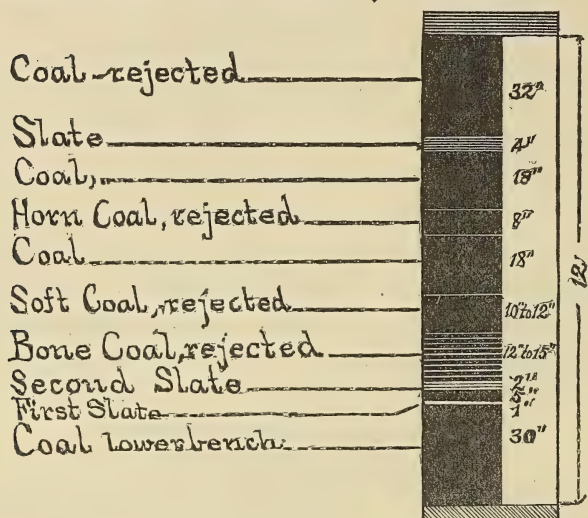 Coal rejected 32"
Slate 4"
Coal, 18"
Horn Coal, rejected 8"
Coal 18"
Soft Coal, rejected 10"to12"
Bone Coal, rejected 12"to15"
Second Slate 2"
5"
First Slate 1"
Coal lower bench 30"
12'